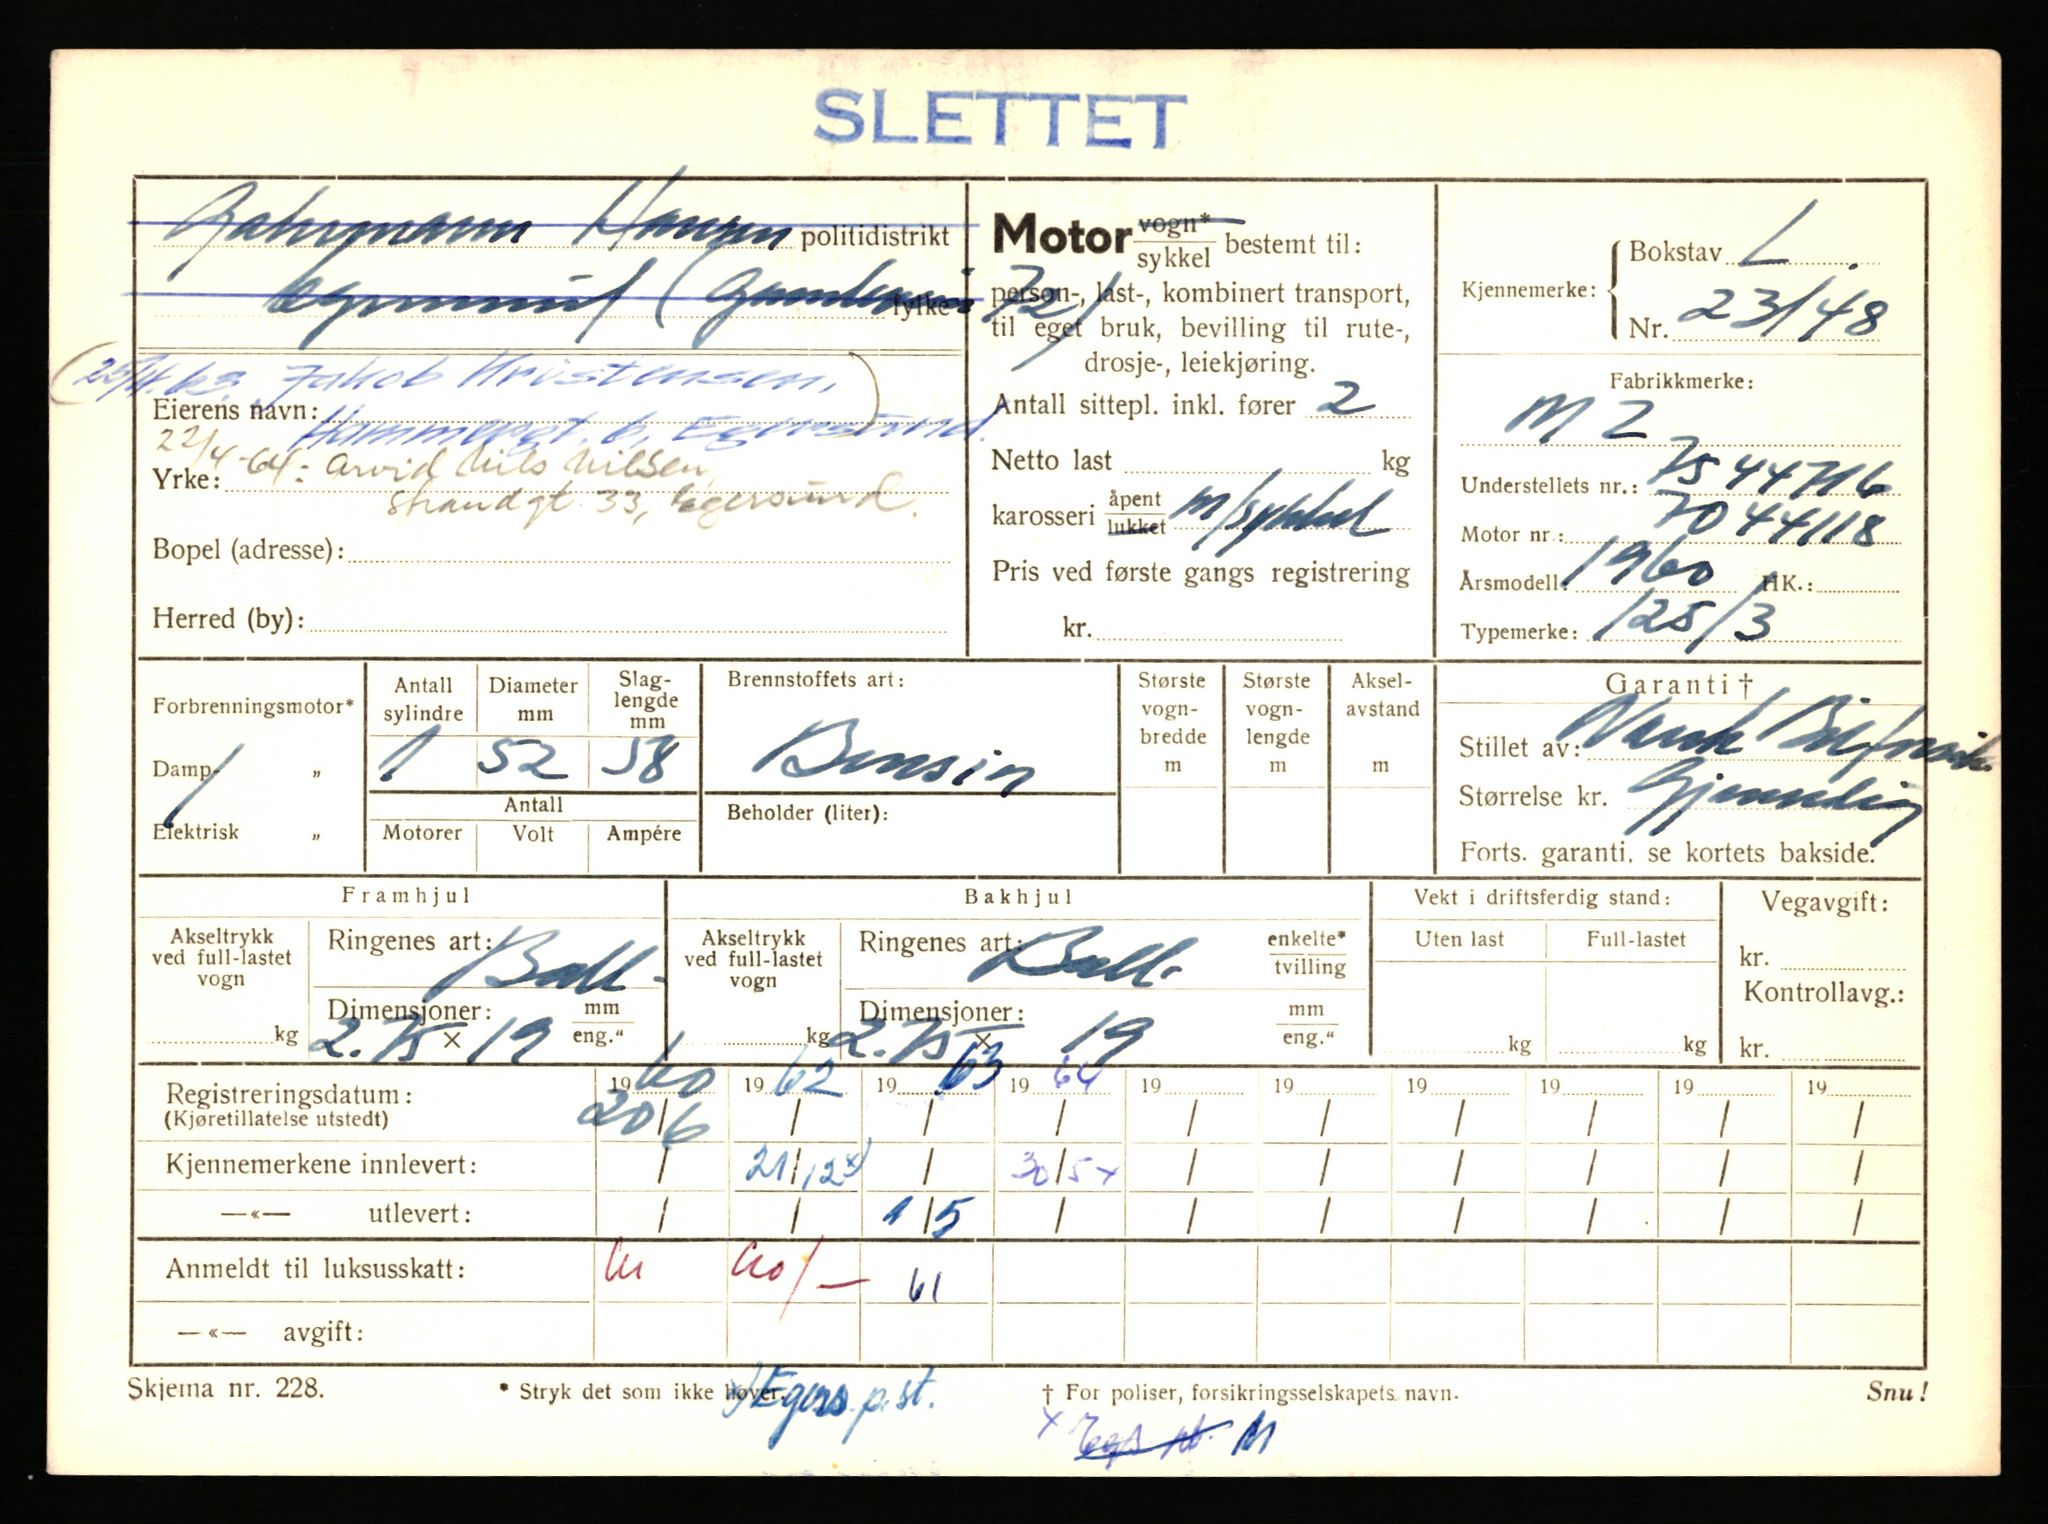 SLETTET
Hansen politidistrikt
fylke
Motor vogn* / sykkel bestemt til:
person-, last-, kombinert transport,
til eget bruk, bevilling til rute-,
drosje-, leiekjøring.
Antall sittepl. inkl. fører 2
Netto last kg
karosseri åpent / lukket m/sykkel
Pris ved første gangs registrering
kr.
Kjennemerke: Bokstav L
Nr. 23148
Fabrikkmerke:
MZ
Understellets nr.: 7544716
Motor nr.: 7044118
Årsmodell: 1960 HK.:
Typemerke: 125/3
Jakob Kristensen,
Eierens navn: Hammergt. 6, Egersund.
22/4-64: Arvid Nils Nilsen,
Yrke: Strandgt. 33, Egersund.
Bopel (adresse):
Herred (by):
Forbrenningsmotor*
Damp- „
Elektrisk „
Antall sylindre 1
Diameter mm 52
Slag-lengde mm 58
Antall
Motorer Volt Ampére
Brennstoffets art:
Bensin
Beholder (liter):
Største vogn-bredde m
Største vogn-lengde m
Aksel-avstand m
Garanti †
Stillet av: Norsk Bilforsik.
Størrelse kr. Gjensidig
Forts. garanti, se kortets bakside.
Framhjul
Akseltrykk ved full-lastet vogn
kg
Ringenes art: Ball.
Dimensjoner: mm / eng."
2.75 x 19
Bakhjul
Akseltrykk ved full-lastet vogn
kg
Ringenes art: Ball. enkelte* / tvilling
Dimensjoner: mm / eng."
2.75 x 19
Vekt i driftsferdig stand:
Uten last Full-lastet
kg kg
Vegavgift:
kr.
Kontrollavg.:
kr.
Registreringsdatum: 1960 1962 1963 1964 19 19 19 19 19 19
(Kjøretillatelse utstedt) 20/6 / / / / / / / / /
Kjennemerkene innlevert: / 21/12 x) / 30/5 x / / / / / /
—«— utlevert: / / 1/5 / / / / / / /
Anmeldt til luksusskatt: 61
—«— avgift:
Skjema nr. 228.
* Stryk det som ikke høver.
x) Egers. p.st.
† For poliser, forsikringsselskapets navn.
Snu!
x M